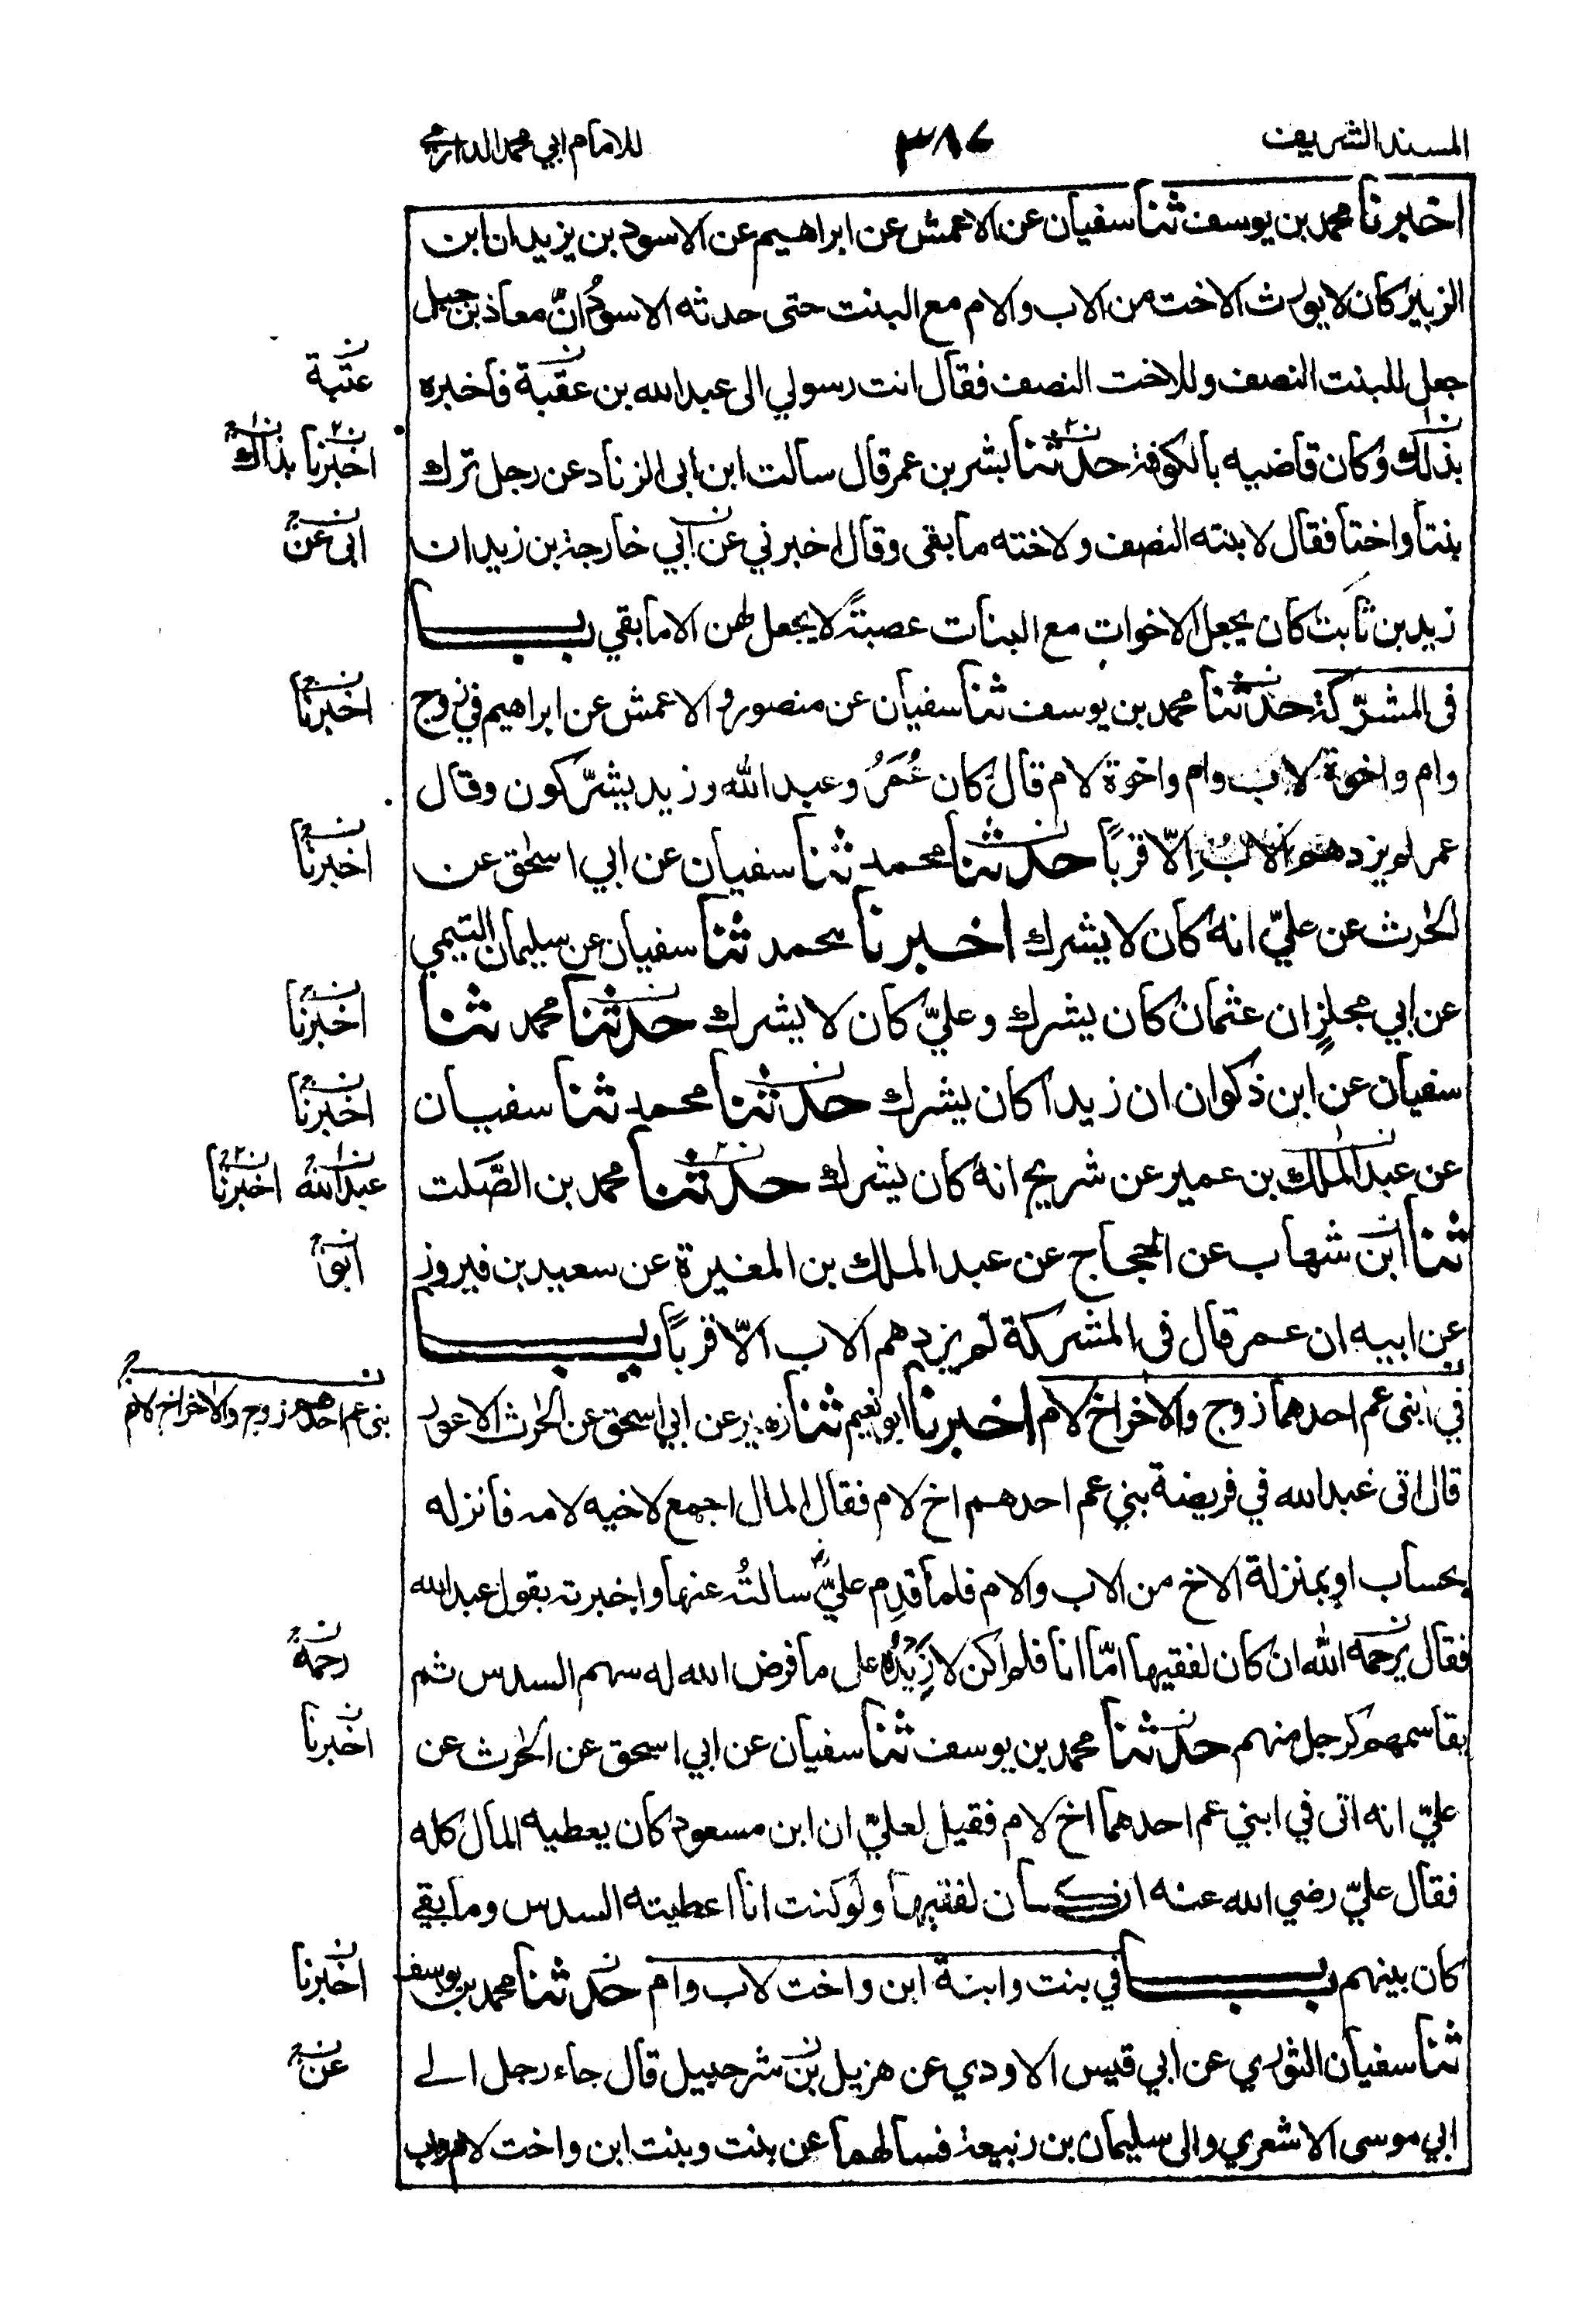 المسند الشريف ٣٨٦ للامام ابي محمد الدارمي
اخبرنا محمد بن يوسف ثنا سفيان عن الاعمش عن ابراهيم عن الاسود بن يزيد ان ابن
الزبير كان لا يورث الاخت من الاب والام مع البنت حتى حدثه الاسودُ انّ معاذ بن جبل
جعل للبنت النصف وللاخت النصف فقال انت رسولي الى عبد الله بن عقبة فاخبره
عتبة
بذلك وكان قاضيه بالكوفة حدثنا بشر بن عمر قال سالت ابن ابى الزناد عن رجل ترك
اخبرنا بذاك
بنتا واختا فقال لابنته النصف ولاخته ما بقى وقال اخبرني عن ابي خارجة بن زيد ان
ابى عن
زيد بن ثابت كان يجعل الاخوات مع البنات عصبتً لا يجعل لهن الا ما بقي بــــاب
فى المشرّكة حدثنا محمد بن يوسف ثنا سفيان عن منصور و الاعمش عن ابراهيم في زوج
اخبرنا
وام واخوة لاب وام واخوة لام قال كان عُمَرُ وعبد الله وزيد يشرّكون وقال
عمر لم يزدهم الابُ اِلّا قربًا حدثنا محمد ثنا سفيان عن ابي اسحق عن
اخبرنا
الحرث عن عليّ انه كان لا يشرك اخبرنا محمد ثنا سفيان عن سليمان التيمي
عن ابي مجلزٍ ان عثمان كان يشرك وعليّ كان لا يشرك حدثنا محمد ثنا
اخبرنا
سفيان عن ابن ذكوان ان زيدا كان يشرك حدثنا محمد ثنا سفيان
اخبرنا
عن عبد الملك بن عمير عن شريح انه كان يشرك حدثنا محمد بن الصَّلت
عبد الله اخبرنا
ثنا ابن شهاب عن الحجاج عن عبد الملك بن المغيرة عن سعيد بن فيروز
ابو
عن ابيه ان عمر قال فى المشركة لم يزدهم الاب الّا قربًا بــــاب
في ابنى عم احدهما زوج والاخر اخ لام اخبرنا ابو نعيم ثنا زهير عن ابي اسحق عن الحرث الاعور
بنى عم احدهم زوج والاخر اخ لام
قال اتى عبد الله في فريضة بني عم احدهم اخ لام فقال المال اجمع لاخيه لامه فانزله
بحساب او بمنزلة الاخ من الاب والام فلما قدِم عليّ سالتُه عنها واخبرته بقول عبد الله
فقال يرحمه الله ان كان لفقيها امّا انا فلم اكن لازيده على ما فرض الله له سهم السدس ثم
رحمه
يقاسمهم كرجل منهم حدثنا محمد بن يوسف ثنا سفيان عن ابي اسحق عن الحرث عن
اخبرنا
عليّ انه اتى في ابني عم احدهما اخ لام فقيل لعليّ ان ابن مسعود كان يعطيه المال كله
فقال عليّ رضي الله عنه ان كان لفقيها ولو كنت انا اعطيته السدس وما بقي
كان بينهم بــــاب في بنت وابنة ابن واخت لاب وام حدثنا محمد بن يوسف
اخبرنا
ثنا سفيان الثوري عن ابي قيس الاودي عن هزيل بن شرحبيل قال جاء رجل الى
عن
ابي موسى الاشعري والى سليمان بن ربيعة فسالهما عن بنت وبنت ابن واخت لام واب